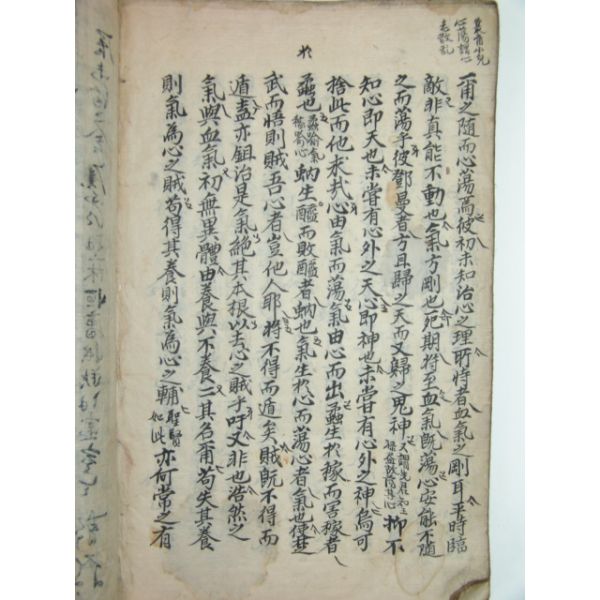 於
一甫之隨而心蕩焉彼初未知治心之理所恃者血氣之剛耳平時臨
敵非真能不動也氣方剛也死期將至血氣既蕩心安能不隨
之而蕩乎彼鄧曼者方且歸之天而又歸之鬼神又謂先君知之抑不
知心即天也未嘗有心外之天心即神也未嘗有心外之神烏可
捨此而他求哉心由氣而蕩氣由心而出蟊生於稼而害稼者
蟊也蚋生醯而敗醯者蚋也氣生於心而蕩心者氣也使楚
武而悟則賊吾心者豈他人耶將不得而遁矣賊既不得而
遁盍亦鉏治是氣絕其本根以去心之賊乎吁又非也浩然之
氣與血氣初無異體由養與不養二其名爾苟失其養
則氣為心之賊苟得其養則氣為心之輔聖賢如此亦何常之有